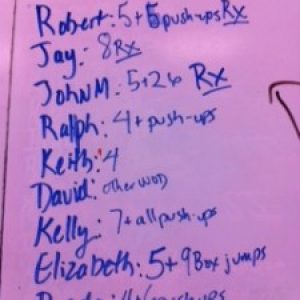 Robert: 5+6 push-ups Rx
Jay: 8 Rx
John M: 5+26 Rx
Ralph: 4+push-ups
Keith: 4
David: other WOD
Kelly: 7+all push-ups
Elizabeth: 5+9 Box jumps